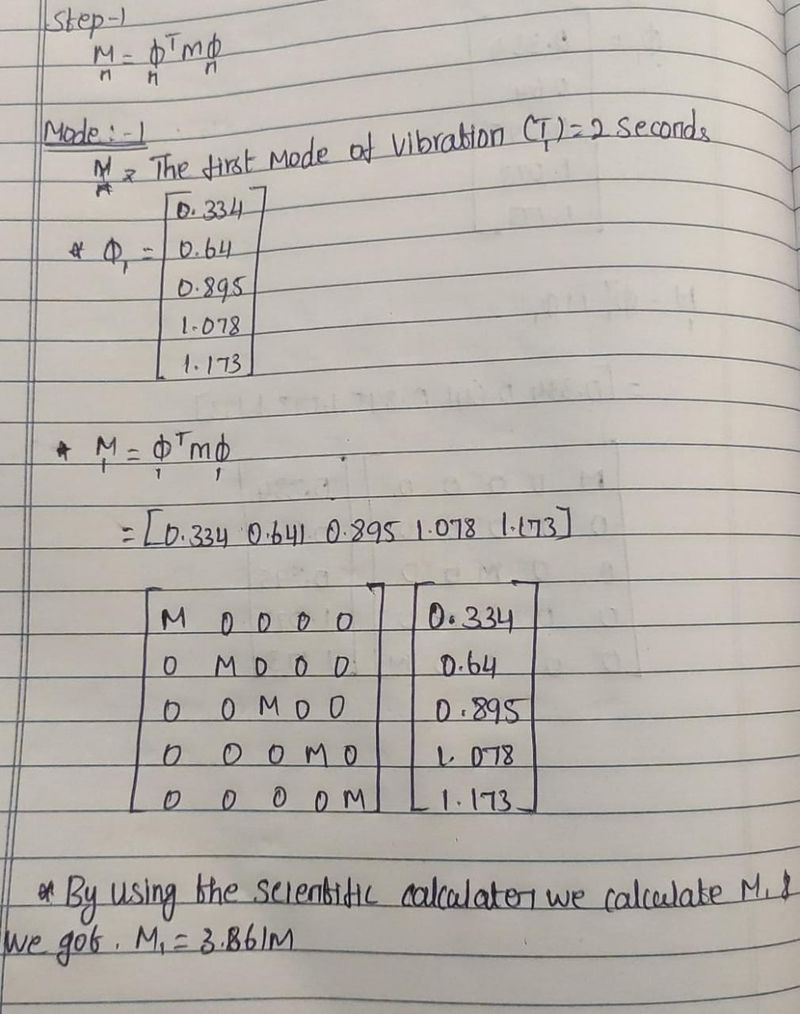 Step-1
M = ϕᵀmϕ
n n n
Mode:-1
M * The first Mode of vibration (T₁)=2 seconds
0.334
* ϕ₁ = 0.64
0.895
1.078
1.173
* M = ϕᵀmϕ
1 1 1
= [0.334 0.641 0.895 1.078 1.173]
M 0 0 0 0 0.334
0 M 0 0 0 0.64
0 0 M 0 0 0.895
0 0 0 M 0 1.078
0 0 0 0 M 1.173
* By using the scientific calculater we calculate M₁ &
we got. M₁ = 3.861M